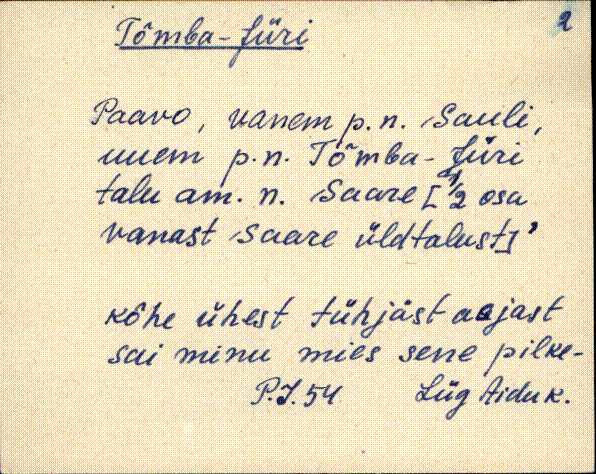 2
Tõmba-Jüri
Paavo, vanem p.n. Sauli,
uuem p.n. Tõmba-Jüri
talu am. n. Saare [1/2 osa
vanast Saare üldtalust]'
kõhe ühest tühjäst aajast
sai minu mies sene pilke-
P.J.54 Lüg Aidu k.